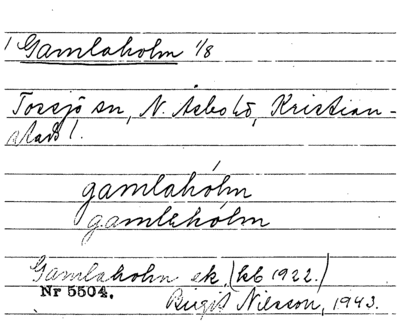 1 Gamlaholm 1/8
Torsjö sn, N. Åsbo hd, Kristian-
stads l.
gamlahólm
gamlehólm
Gamlaholm ek. (kb 1922.)
Nr 5504.
Birgit Nilsson, 1943.